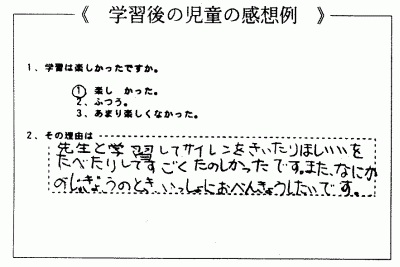 《 学習後の児童の感想例 》
1、学習は楽しかったですか。
① 楽し かった。
2、ふつう。
3、あまり楽しくなかった。
2、その理由は
先生と学習してサイレンをきいたりほしいいを
たべたりしてすごくたのしかったです。また、なにか
のじぎょうのとき いっしょにおべんきょうしたいです。